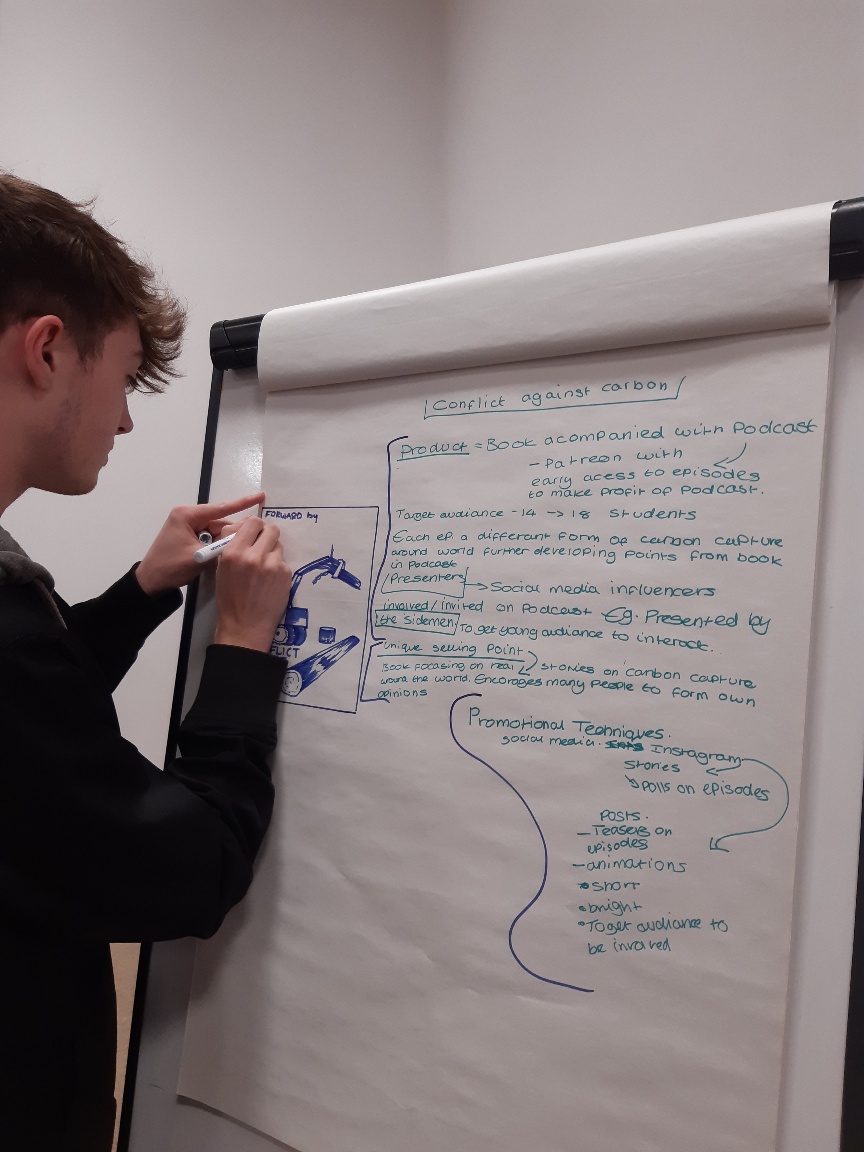 Conflict against carbon
Product = Book acompanied with Podcast
- Patreon with
early acess to episodes
to make profit of Podcast.
Target audiance - 14 → 18 Students
Each ep a different form of carbon capture
around world further developing points from book
in Podcast
Presenters → Social media influencers
involved/invited on Podcast Eg. Presented by
the Sidemen To get young audiance to interact.
Unique selling Point
Book focusing on real stories on carbon capture
around the world. Encorages many people to form own
opinions
FORWARD by
FLICT
Promotional Techniques.
social media. Instagram
Stories
Polls on episodes
Posts.
- Teasers on
episodes
- animations
• short
• bright
• To get audiance to
be involved